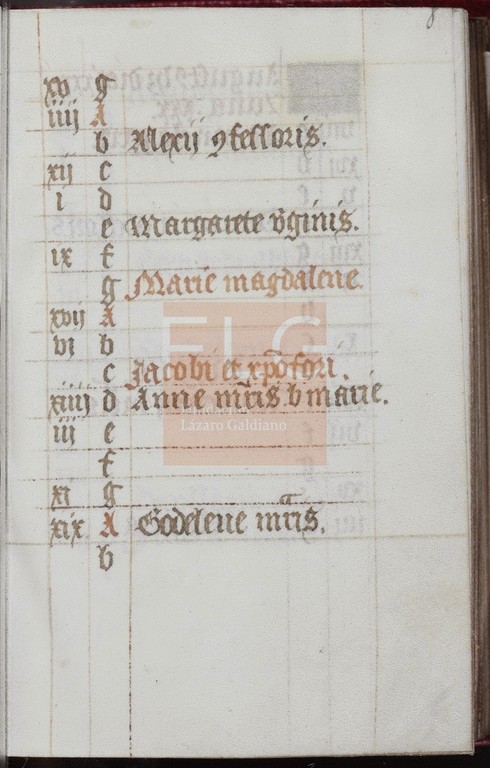 8
xv g
iiij A
b Alexij ꝯfessoris.
xij c
i d
e Margarete v̄ginis.
ix f
g Marie magdalene.
xvij A
vi b
c Jacobi et xp̄ofori.
xiiij d Anne mr̄is b marie.
iij e
f
xi g
xix A Godeleue mr̄is.
b
FLG
Lázaro Galdiano